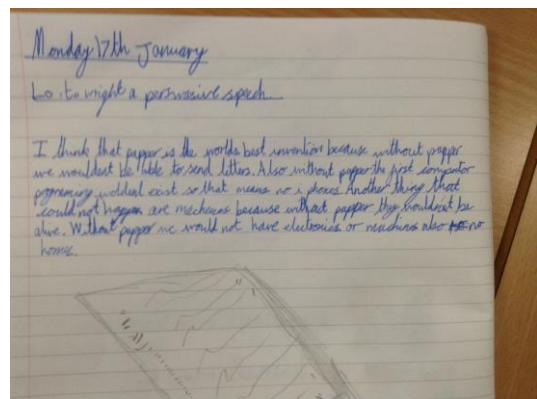 Monday 17th January
Lo: to wright a persuasive speech
I think that papper is the worlds best invention because without papper
we wouldent be able to send letters. Also without papper the first computor
programing woldent exist so that means no i phones. Another thing that
could not happen are mechines because without papper they wouldent be
alive. Without papper we would not have electronics or machines also no
homes.